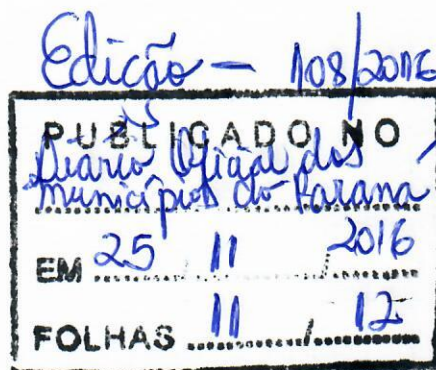 Edição - 108/2016
PUBLICADO NO
Diário Oficial dos
municípios do Parana
EM 25 / 11 / 2016
FOLHAS 11 / 12